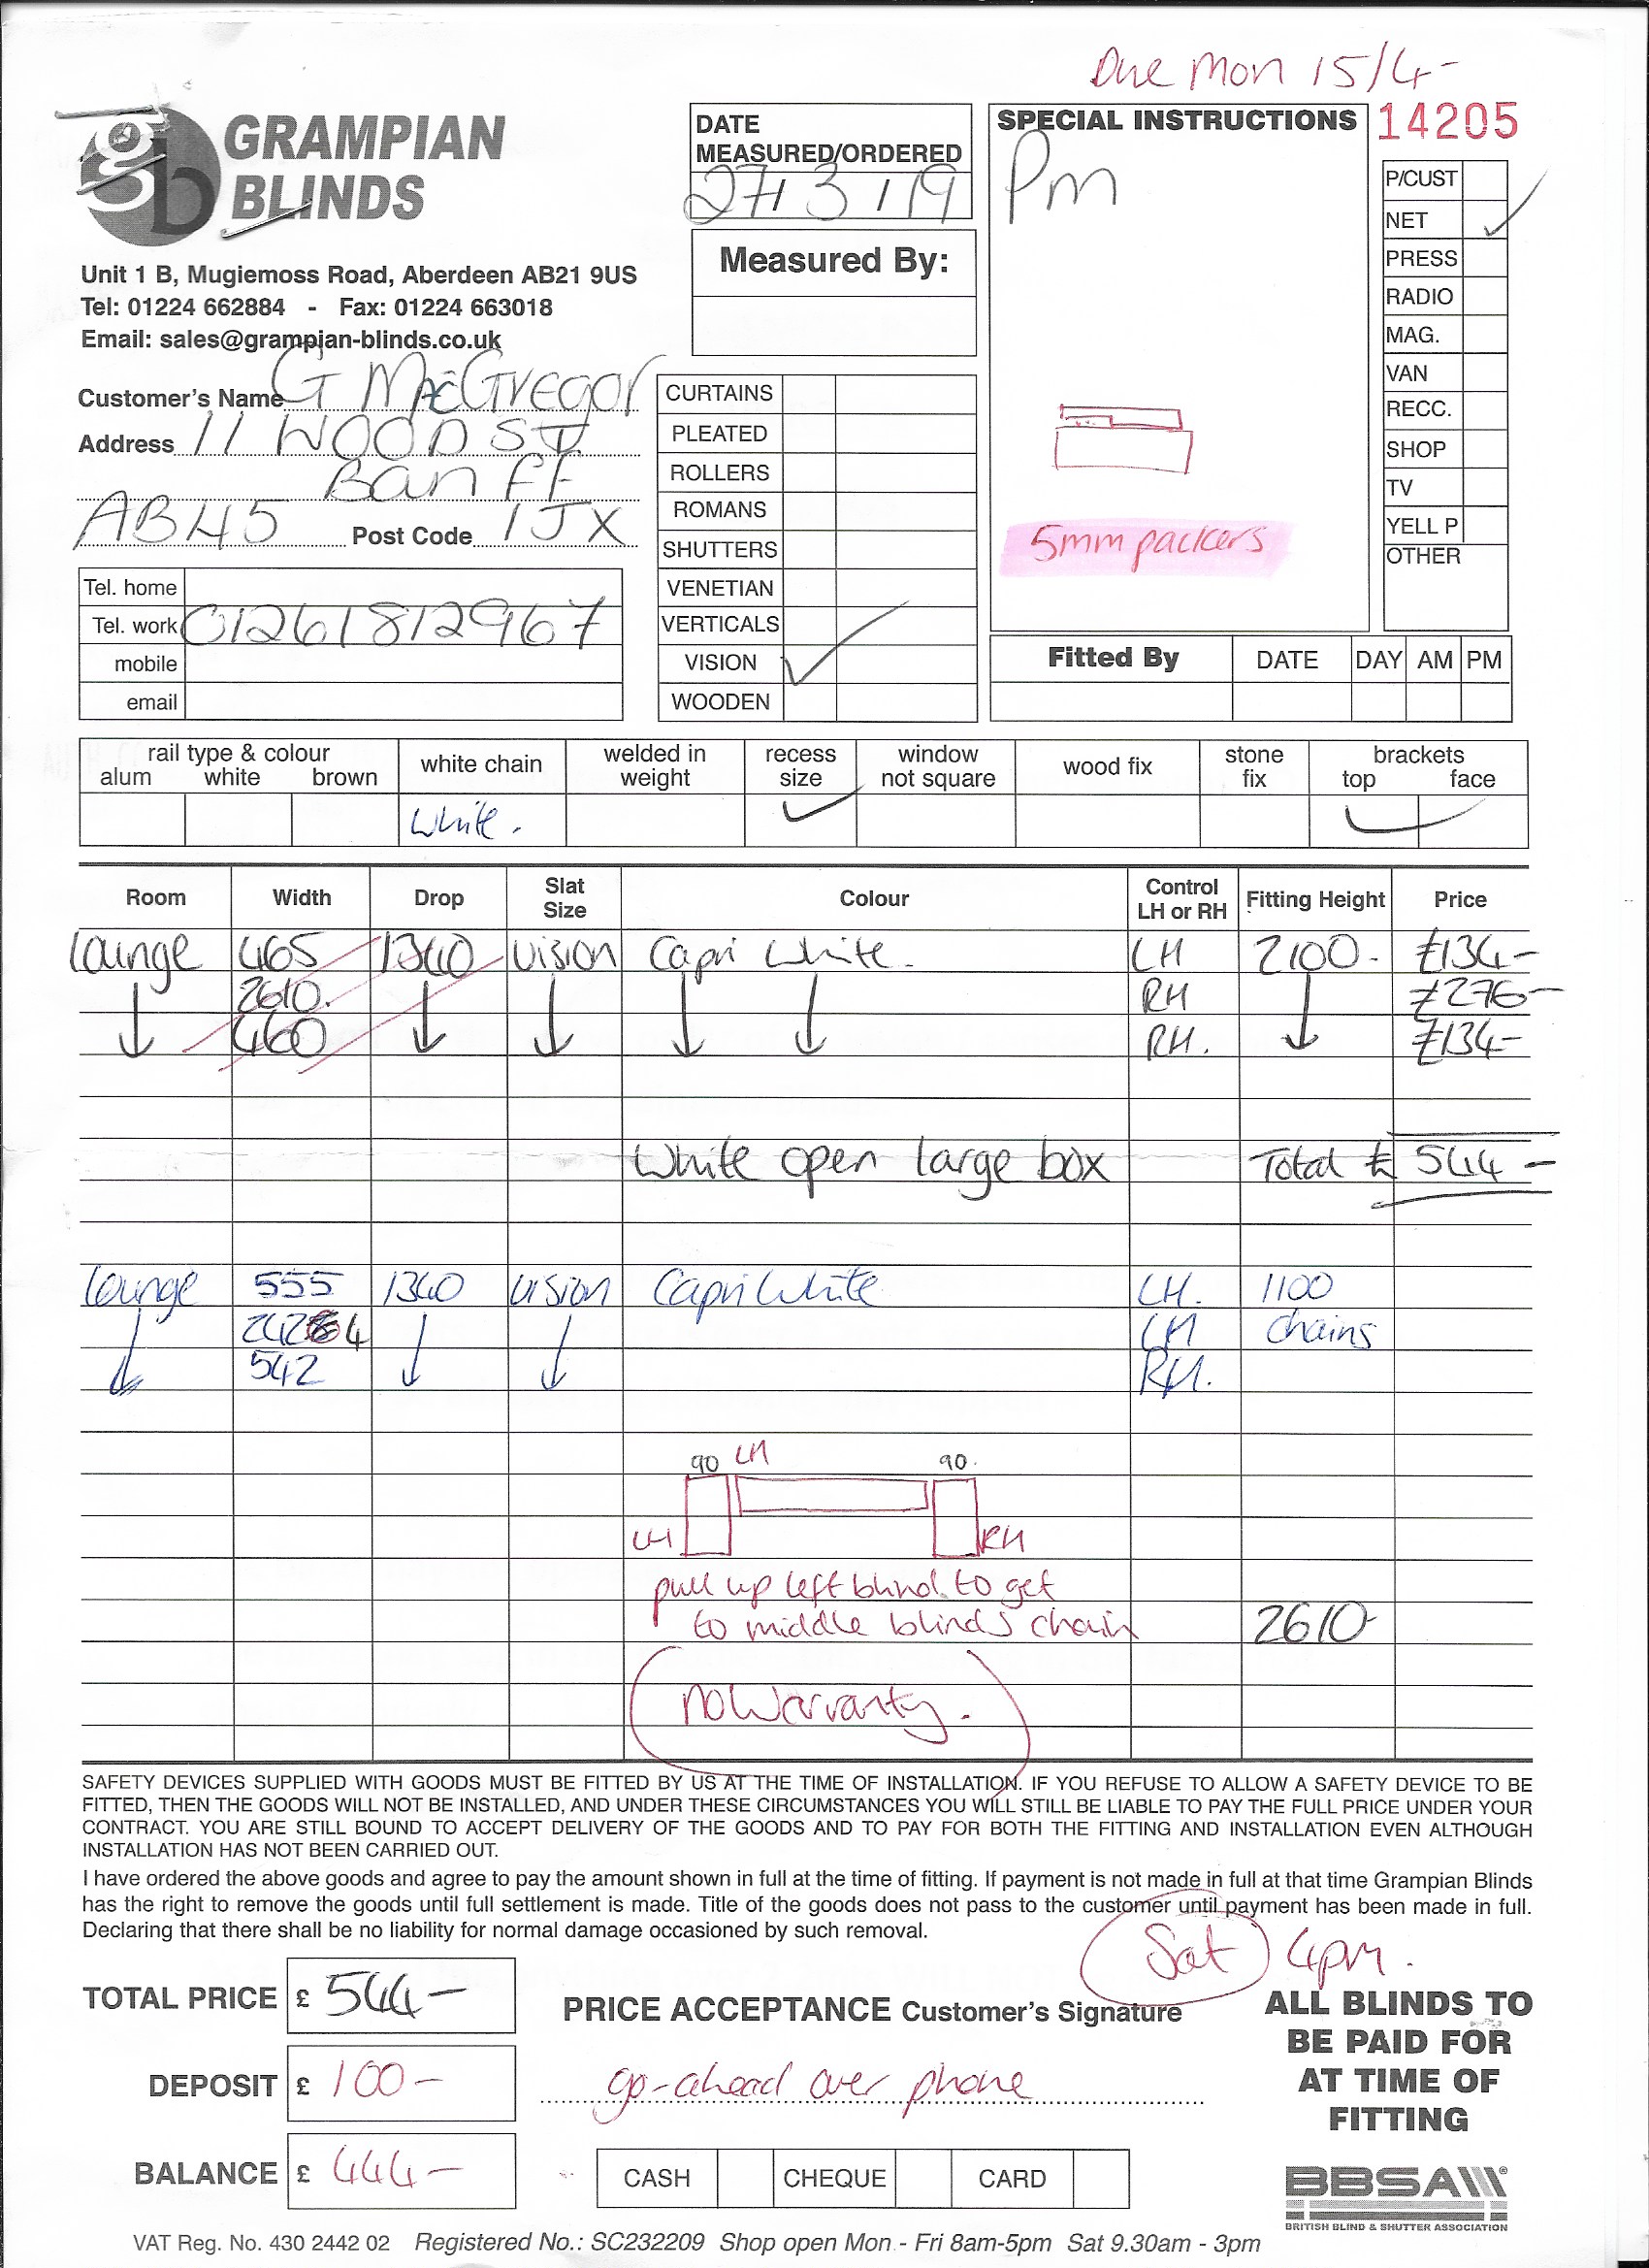 Due Mon 15/4-
GRAMPIAN
BLINDS
Unit 1 B, Mugiemoss Road, Aberdeen AB21 9US
Tel: 01224 662884 - Fax: 01224 663018
Email: sales@grampian-blinds.co.uk
DATE
MEASURED/ORDERED
27/3/19
Measured By:
SPECIAL INSTRUCTIONS
Pm
5mm packers
14205
P/CUST
NET ✓
PRESS
RADIO
MAG.
VAN
RECC.
SHOP
TV
YELL P
OTHER
Customer's Name G MacGregor
Address 11 WOOD ST
Banff
AB45 Post Code 1JX
Tel. home
Tel. work 01261812967
mobile
email
CURTAINS
PLEATED
ROLLERS
ROMANS
SHUTTERS
VENETIAN
VERTICALS
VISION ✓
WOODEN
Fitted By DATE DAY AM PM
rail type & colour
alum white brown
white chain
White.
welded in weight
recess size ✓
window not square
wood fix
stone fix
brackets
top face ✓
Room Width Drop Slat Size Colour Control LH or RH Fitting Height Price
Lounge 465 1340 Vision Capri White. LH 2100. £134-
2610. RH £276-
460 RH. £134-
White open large box Total £ 544-
Lounge 555 1340 Vision Capri White LH. 1100
2424 LH chains
542 RH.
90 LH 90.
LH RH
pull up left blind to get
to middle blinds chain 2610-
no Warranty.
SAFETY DEVICES SUPPLIED WITH GOODS MUST BE FITTED BY US AT THE TIME OF INSTALLATION. IF YOU REFUSE TO ALLOW A SAFETY DEVICE TO BE
FITTED, THEN THE GOODS WILL NOT BE INSTALLED, AND UNDER THESE CIRCUMSTANCES YOU WILL STILL BE LIABLE TO PAY THE FULL PRICE UNDER YOUR
CONTRACT. YOU ARE STILL BOUND TO ACCEPT DELIVERY OF THE GOODS AND TO PAY FOR BOTH THE FITTING AND INSTALLATION EVEN ALTHOUGH
INSTALLATION HAS NOT BEEN CARRIED OUT.
I have ordered the above goods and agree to pay the amount shown in full at the time of fitting. If payment is not made in full at that time Grampian Blinds
has the right to remove the goods until full settlement is made. Title of the goods does not pass to the customer until payment has been made in full.
Declaring that there shall be no liability for normal damage occasioned by such removal.
Sat 4pm.
TOTAL PRICE £ 544-
PRICE ACCEPTANCE Customer's Signature
DEPOSIT £ 100-
go-ahead over phone
BALANCE £ 444-
CASH CHEQUE CARD
ALL BLINDS TO
BE PAID FOR
AT TIME OF
FITTING
BBSA
BRITISH BLIND & SHUTTER ASSOCIATION
VAT Reg. No. 430 2442 02 Registered No.: SC232209 Shop open Mon - Fri 8am-5pm Sat 9.30am - 3pm